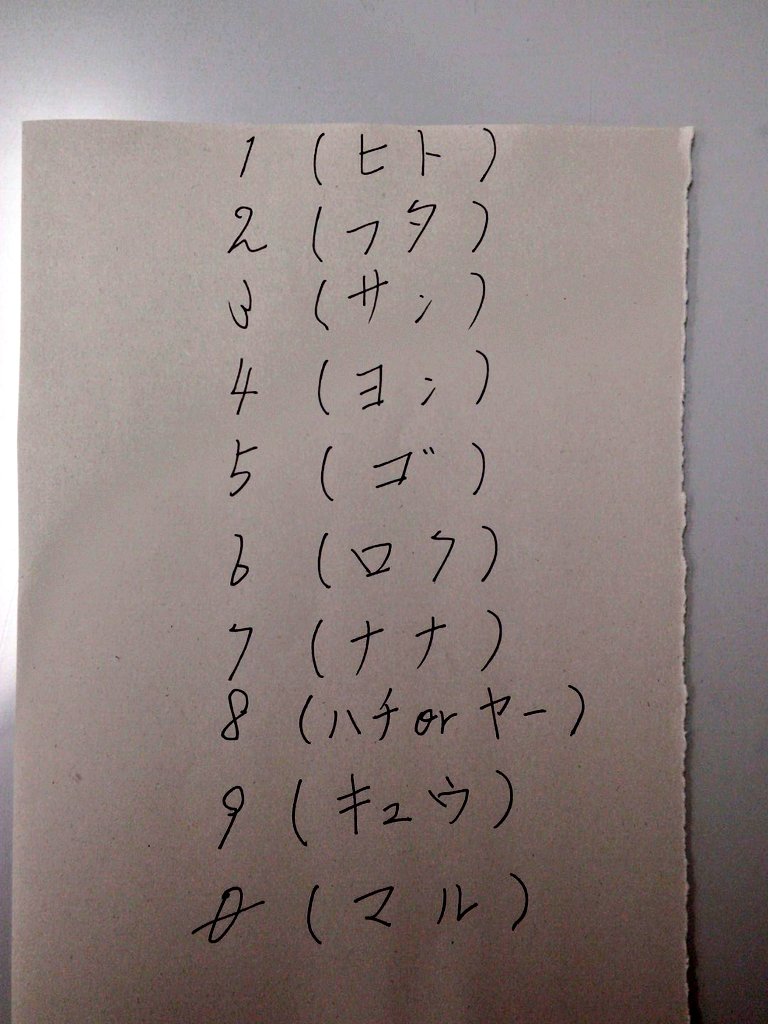 1 (ヒト)
2 (フタ)
3 (サン)
4 (ヨン)
5 (ゴ)
6 (ロク)
7 (ナナ)
8 (ハチorヤー)
9 (キュウ)
0 (マル)